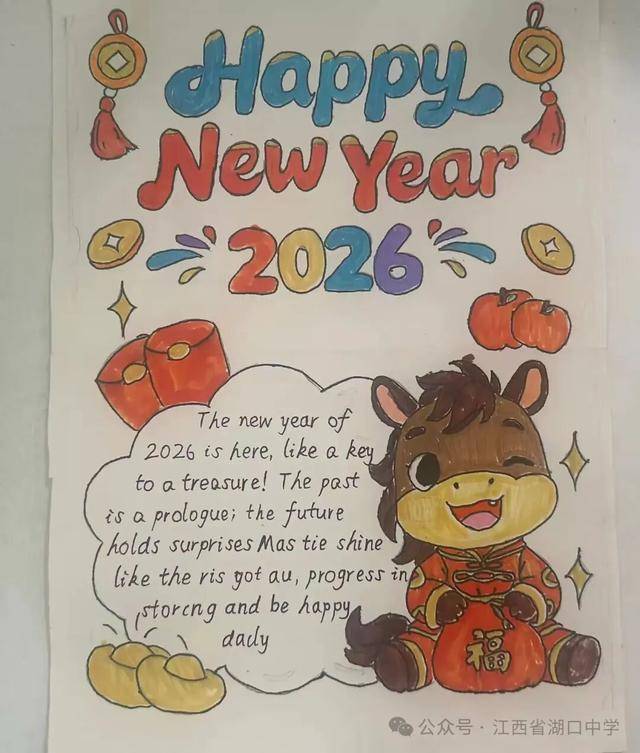 Happy
New Year
2026
The new year of
2026 is here, like a key
to a treasure! The past
is a prologue; the future
holds surprises Mas tie shine
like the ris got au, progress in
storcng and be happy
dacly
福
公众号·江西省湖口中学